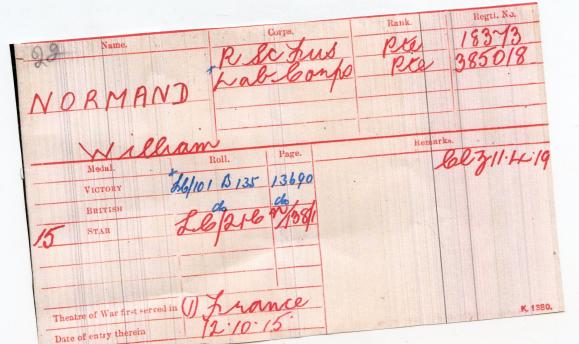 29
Name. Corps. Rank. Regtl. No.
R Sc Fus Pte 18373
NORMAND + Lab Corps Pte 385018
William
Medal. Roll. Page. Remarks.
VICTORY + LC/101 B 135 13690 Cl Z 11.4.19
BRITISH do do
15 STAR
Theatre of War first served in (1) France
Date of entry therein 12.10.15
K. 1380.